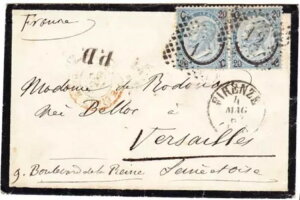 France
P.D.
20 20
FIRENZE
4
MAG
Madame de Rodow
née Bellor à
Versailles
9. Boulevard de la Reine Seine et Oise